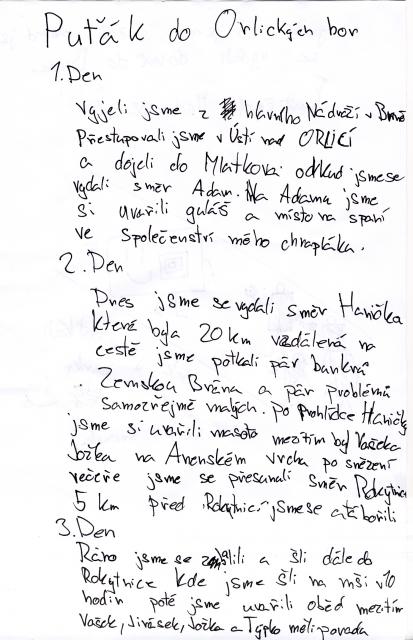 Puťák do Orlických hor
1. Den
vyjeli jsme z hlavního Nádraží v Brně
Přestupovali jsme v Ústí nad ORLICÍ
a dojeli do Mlatkova odkud jsme se
vydali směr Adam. Na Adamu jsme
si uvařili guláš a místo na spaní
ve společenství mého chrapláka.
2. Den
Dnes jsme se vydali směr Hanička
která byla 20 km vzdálená na
cestě jsme potkali pár bunkrů
. Zemskou Bránu a pár problémů
samozřejmě malých. Po Prohlídce Haničky
jsme si uvařili maso mezitím byl Vašek a
Jožka na Anenském vrchu po snězení
večeře jsme se přesunuli směr Rokytnice
5 km před Rokytnicí jsme se utábořili
3. Den
Ráno jsme se a šli dále do
Rokytnice kde jsme šli na mši v 10
hodin poté jsme uvařili oběd mezitím
Vašek, Jirásek, Jožka a Týpko měli povada